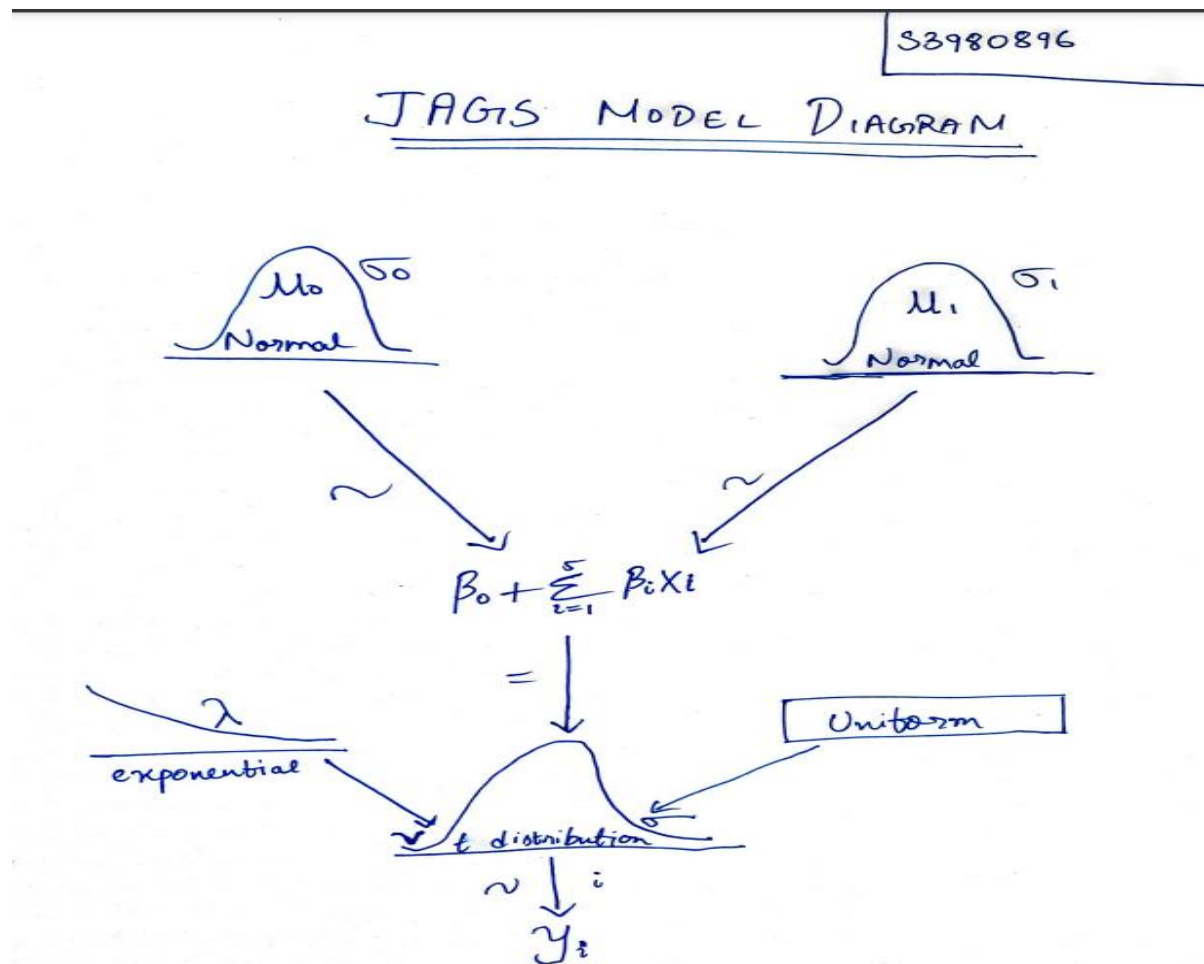 S3980896
JAGS MODEL DIAGRAM
μ₀ σ₀
Normal
μ₁ σ₁
Normal
~ ~
β₀ + Σ⁵ᵢ₌₁ βᵢXᵢ
=
λ
exponential
Uniform
ν σ
t distribution
~ i
yᵢ